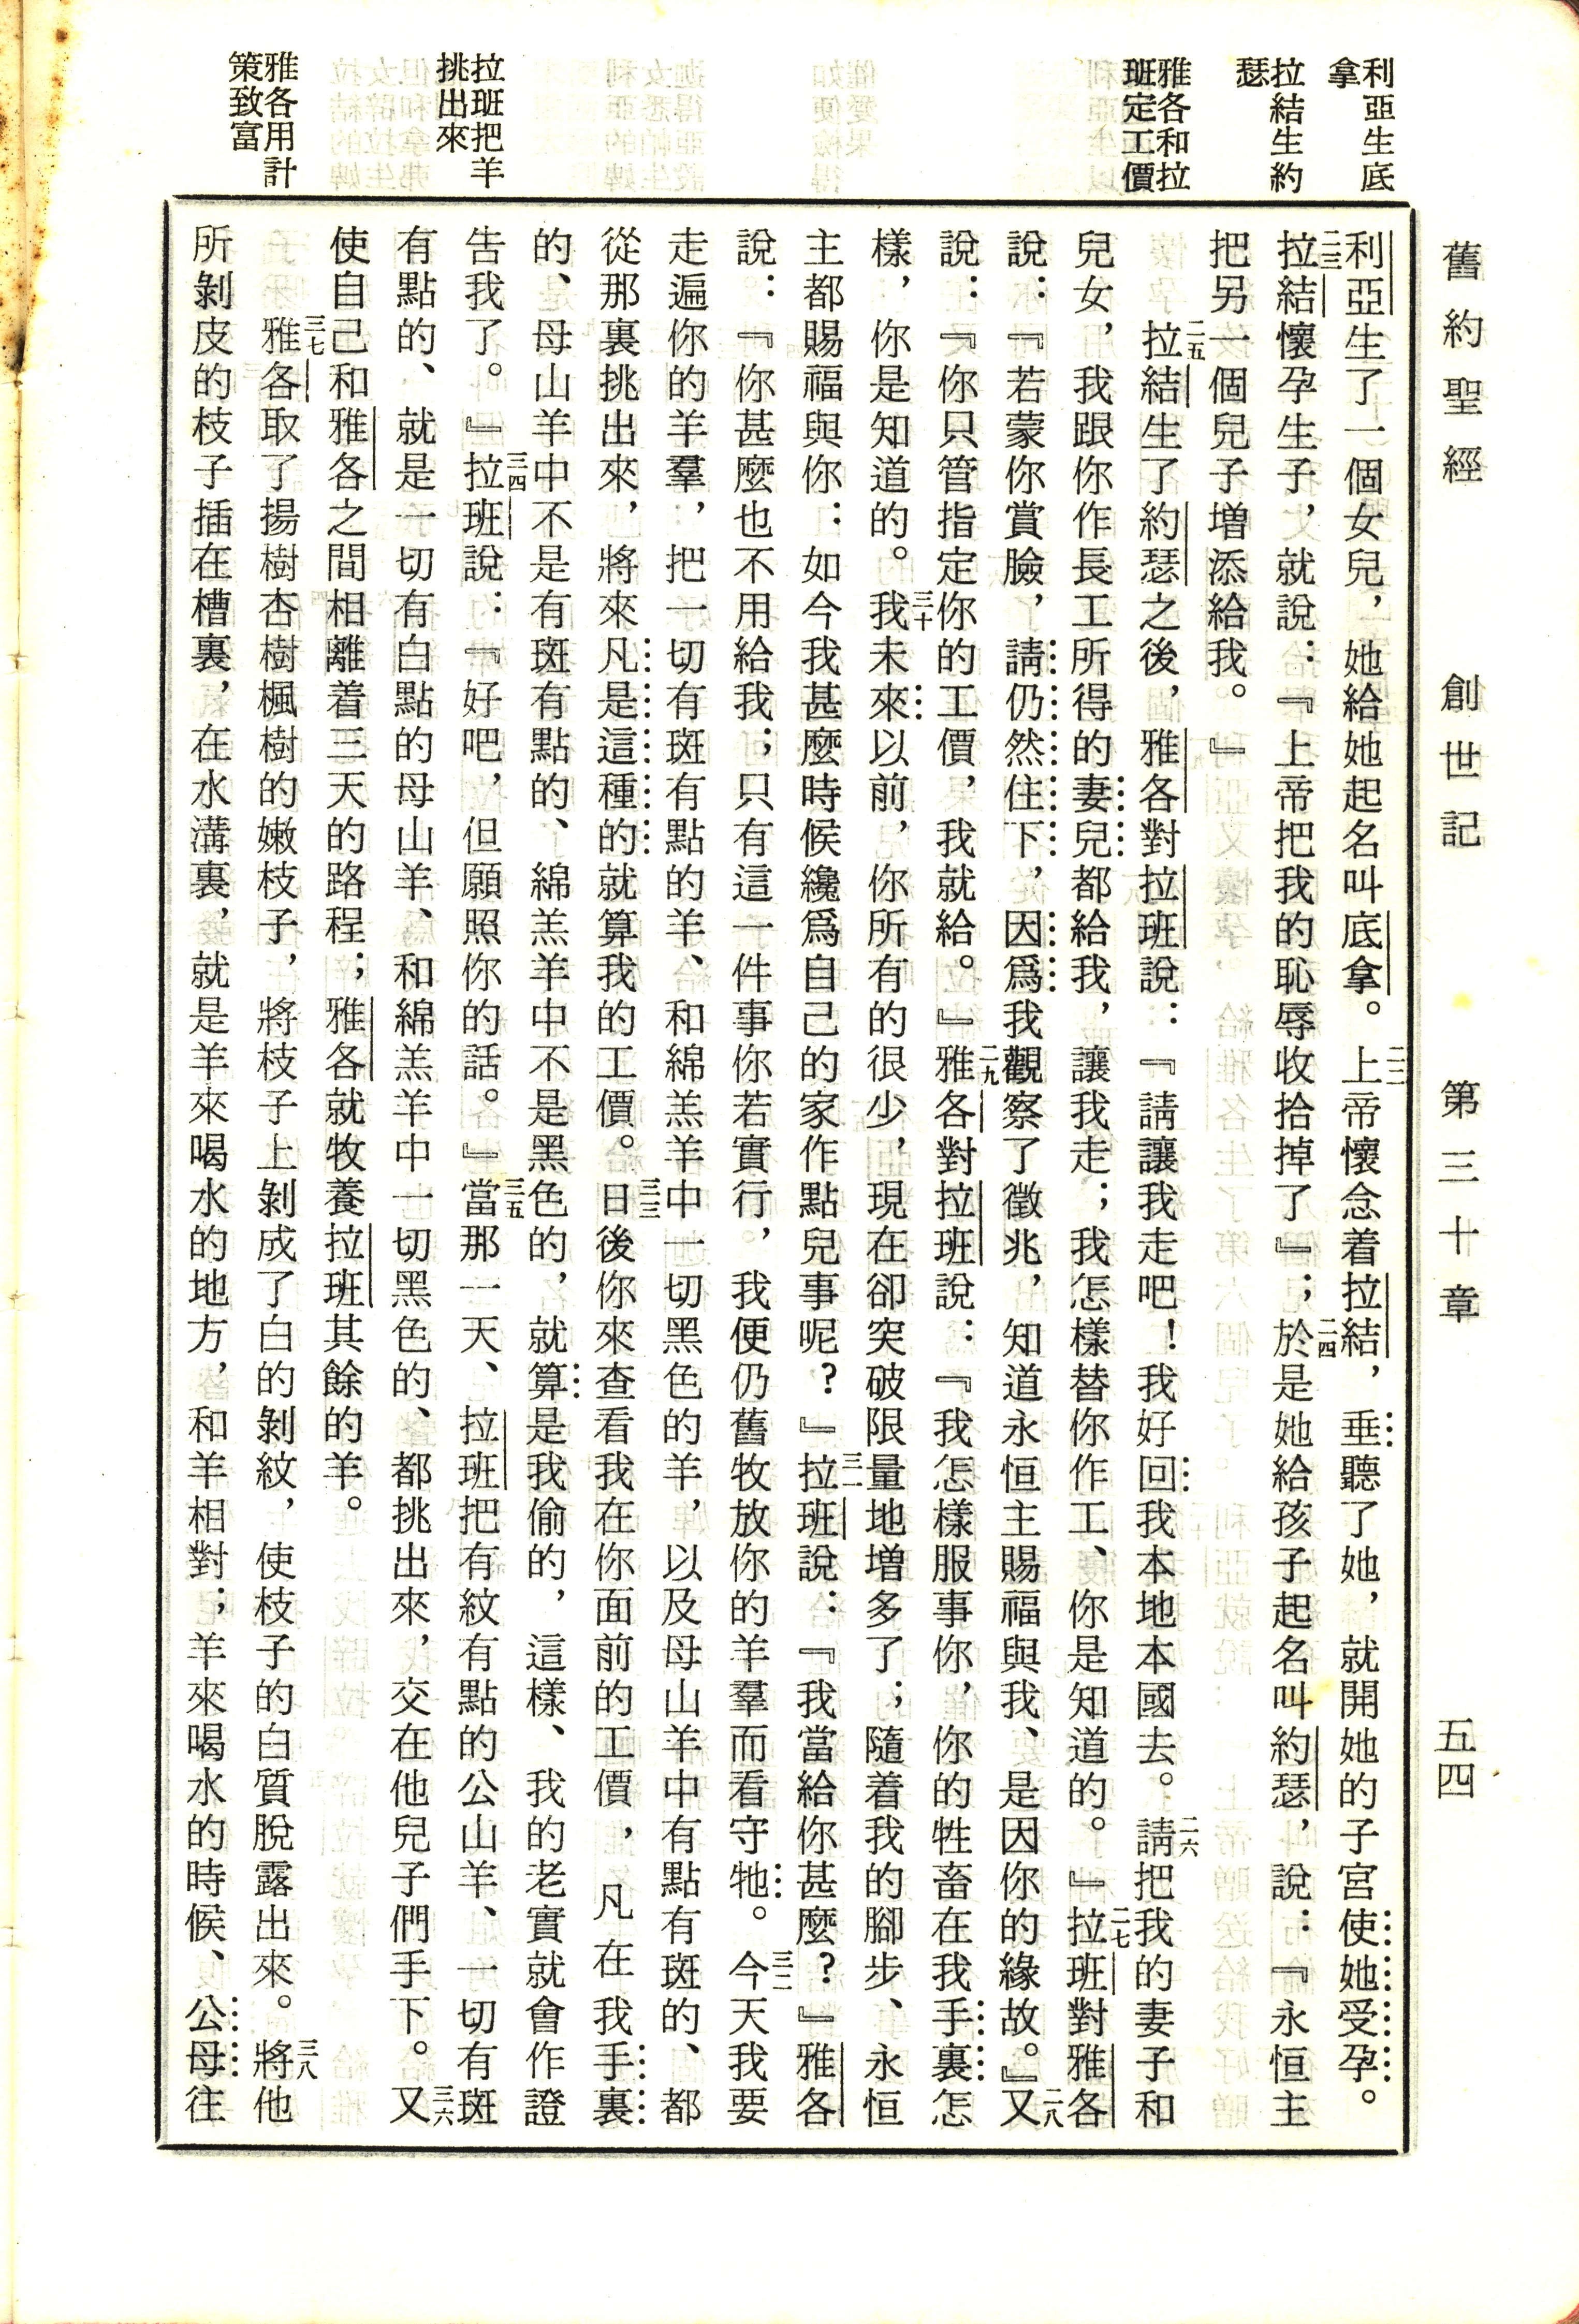 舊約聖經　創世記　第三十章　五四
利亞生底
拿
拉結生約
瑟
雅各和拉
班定工價
拉班把羊
挑出來
雅各用計
策致富
利亞生了一個女兒，她給她起名叫底拿。二二上帝懷念着拉結，垂聽了她，就開她的子宮使她受孕。
二三拉結懷孕生子，就說：『上帝把我的恥辱收拾掉了』；二四於是她給孩子起名叫約瑟，說：『永恒主
把另一個兒子增添給我。』
二五拉結生了約瑟之後，雅各對拉班說：『請讓我走吧！我好回我本地本國去。二六請把我的妻子和
兒女，我跟你作長工所得的妻兒都給我，讓我走；我怎樣替你作工、你是知道的。』二七拉班對雅各
說：『若蒙你賞臉，請仍然住下，因爲我觀察了徵兆，知道永恒主賜福與我、是因你的緣故。』二八又
說：『你只管指定你的工價，我就給。』二九雅各對拉班說：『我怎樣服事你，你的牲畜在我手裏怎
樣，你是知道的。三十我未來以前，你所有的很少，現在卻突破限量地增多了；隨着我的腳步、永恒
主都賜福與你：如今我甚麼時候纔爲自己的家作點兒事呢？』三一拉班說：『我當給你甚麼？』雅各
說：『你甚麼也不用給我；只有這一件事你若實行，我便仍舊牧放你的羊羣而看守牠。三二今天我要
走遍你的羊羣，把一切有斑有點的羊、和綿羔羊中一切黑色的羊，以及母山羊中有點有斑的、都
從那裏挑出來，將來凡是這種的就算我的工價。三三日後你來查看我在你面前的工價，凡在我手裏
的、母山羊中不是有斑有點的、綿羔羊中不是黑色的，就算是我偷的，這樣、我的老實就會作證
告我了。』三四拉班說：『好吧，但願照你的話。』三五當那一天、拉班把有紋有點的公山羊、一切有斑
有點的、就是一切有白點的母山羊、和綿羔羊中一切黑色的、都挑出來，交在他兒子們手下。三六又
使自己和雅各之間相離着三天的路程；雅各就牧養拉班其餘的羊。
三七雅各取了揚樹杏樹楓樹的嫩枝子，將枝子上剝成了白的剝紋，使枝子的白質脫露出來。三八將他
所剝皮的枝子插在槽裏，在水溝裏，就是羊來喝水的地方，和羊相對；羊來喝水的時候、公母往